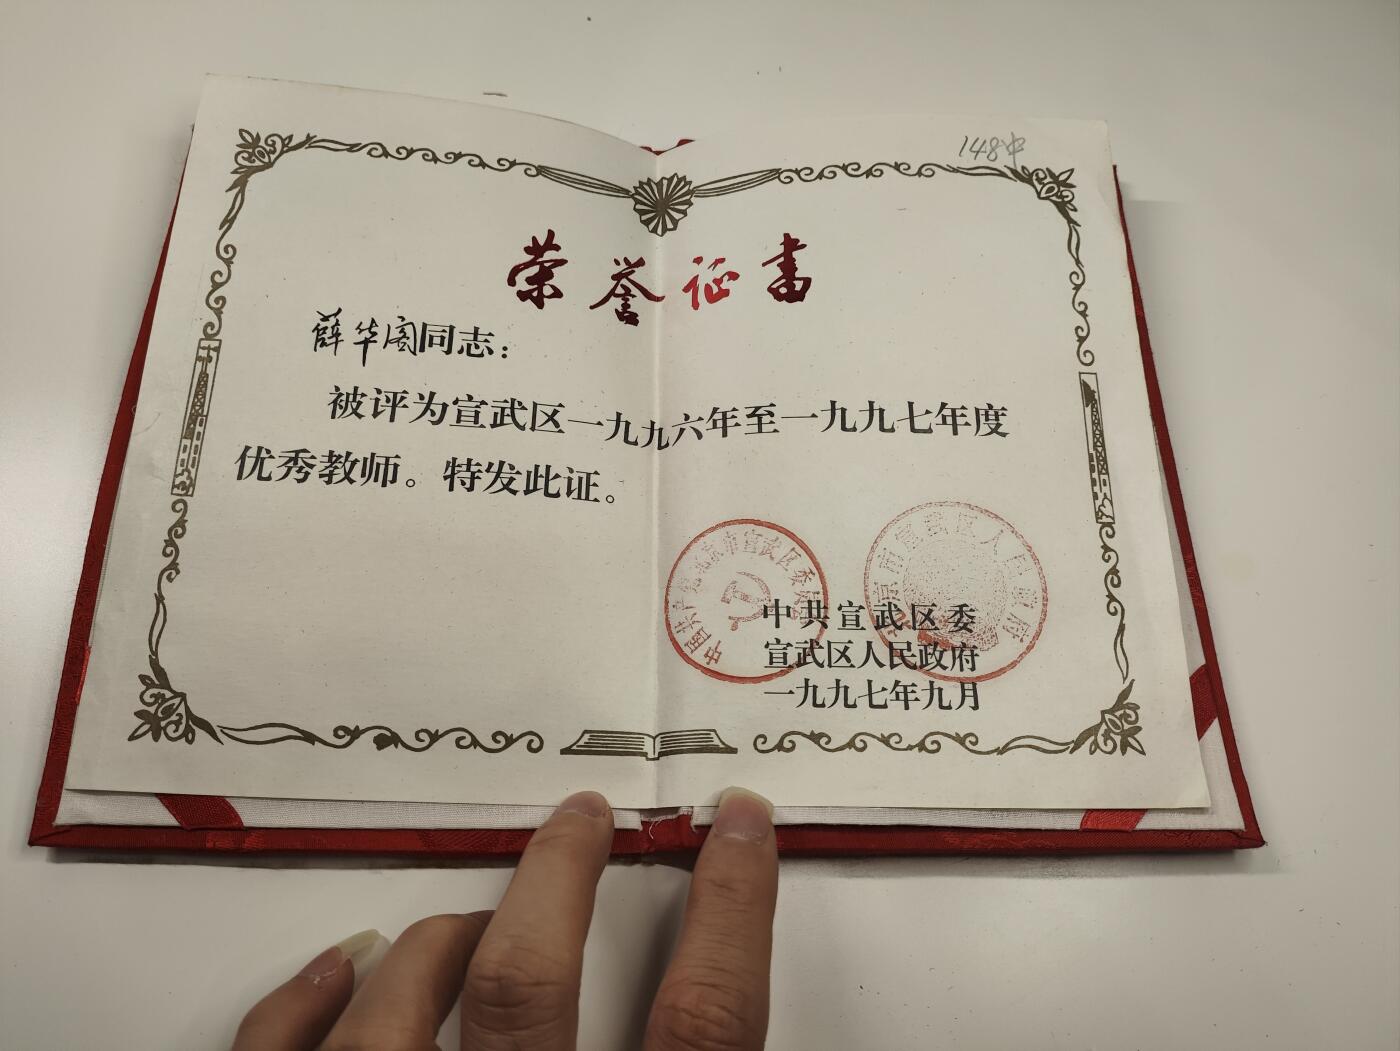 148中
荣誉证书
薛华阁同志：
被评为宣武区一九九六年至一九九七年度
优秀教师。特发此证。
中国共产党北京市宣武区委员会
北京市宣武区人民政府
中共宣武区委
宣武区人民政府
一九九七年九月